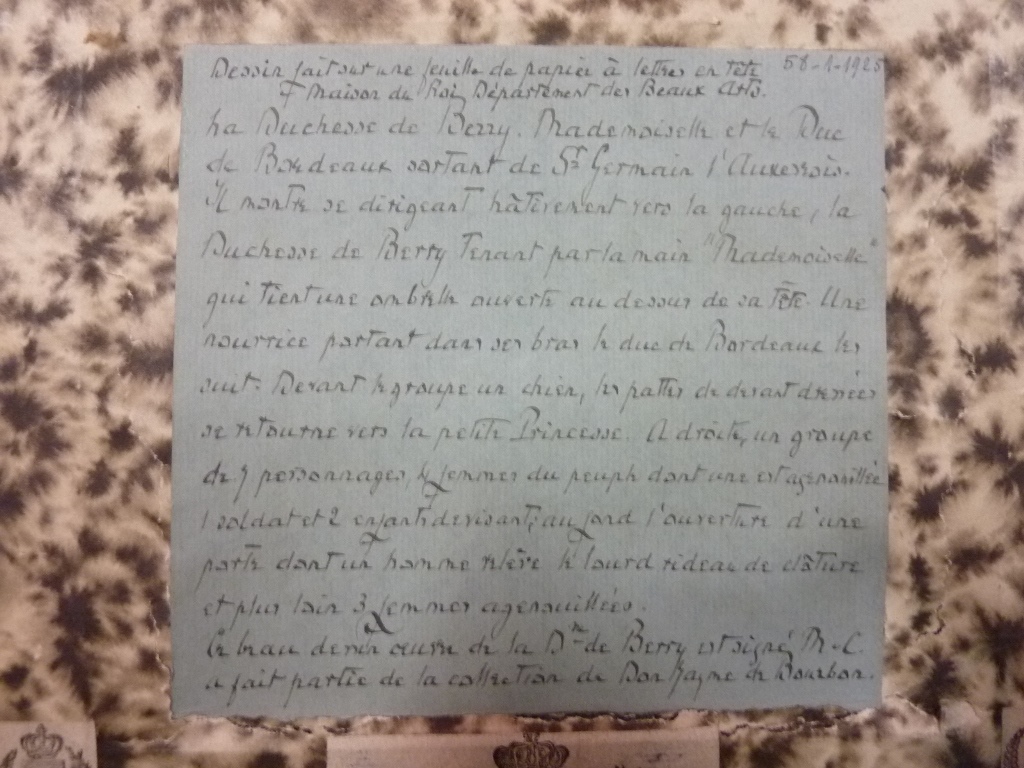 Dessin fait sur une feuille de papier à lettres en tête 58-1-1925
Maison du Roi, Département des Beaux Arts.
La Duchesse de Berry, Mademoiselle et le Duc
de Bordeaux sortant de St Germain l'Auxerrois.
Il montre se dirigeant hâtivement vers la gauche, la
Duchesse de Berry tenant par la main "Mademoiselle"
qui tient une ombrelle ouverte au dessus de sa tête. Une
nourrice portant dans ses bras le duc de Bordeaux les
suit. Devant le groupe un chien, les pattes de devant dressées
se retourne vers la petite Princesse. A droite, un groupe
de 7 personnages, 4 femmes du peuple dont une est agenouillée
1 soldat et 2 enfants devisant; au fond l'ouverture d'une
porte dont un homme relève le lourd rideau de clôture
et plus loin 3 femmes agenouillées.
Ce beau dessin œuvre de la Dsse de Berry est signé M.C.
a fait partie de la collection de Don Jayme de Bourbon.